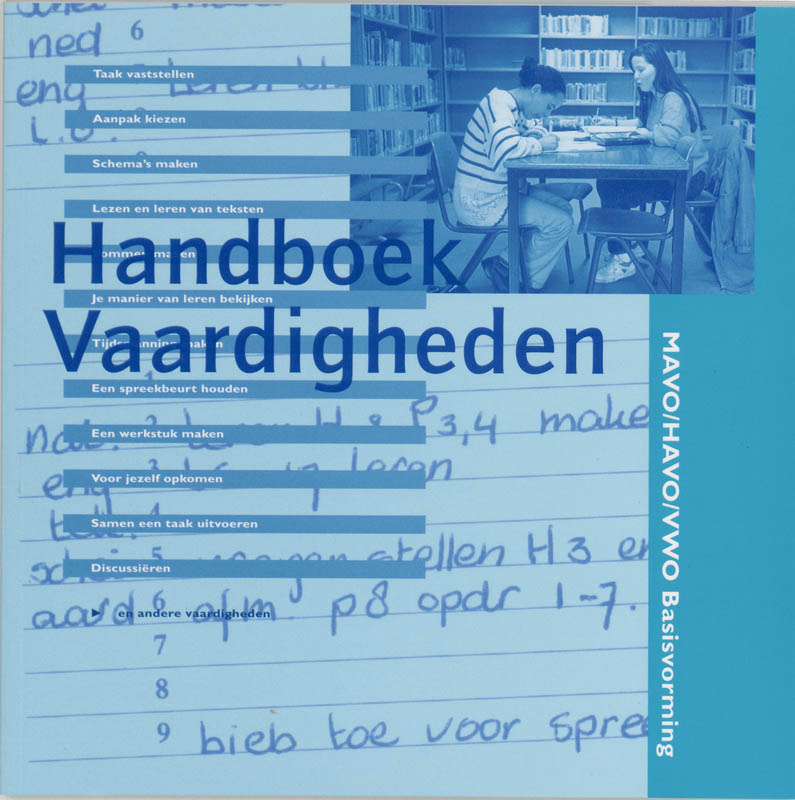 ned 6
eng leren
Taak vaststellen
Aanpak kiezen
Schema's maken
Lezen en leren van teksten
Handboek
Je manier van leren bekijken
Vaardigheden
Tijdsplanning maken
Een spreekbeurt houden
Een werkstuk maken
Voor jezelf opkomen
Samen een taak uitvoeren
Discussiëren
en andere vaardigheden
MAVO/HAVO/VWO Basisvorming
leren H 8 P 3,4 make
eng 3 leren
5 stellen H3 en
aard 6 afm. p8 opdr 1-7.
7
8
9 bieb toe voor spree